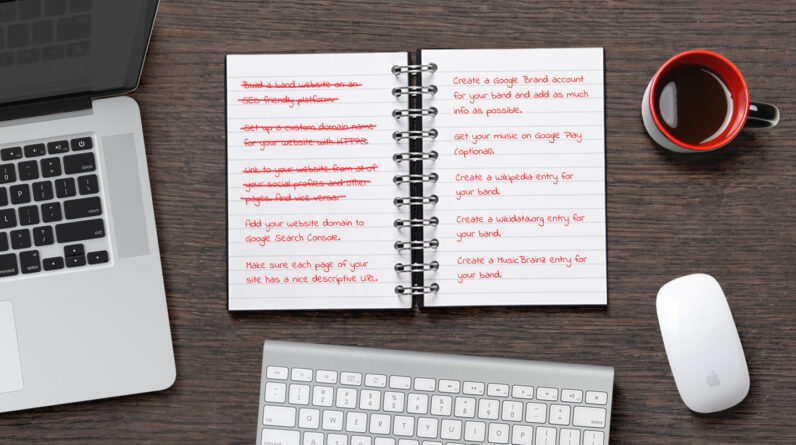 Build a band website on an
SEO friendly platform.
Set up a custom domain name
for your website with HTTPS.
Link to your website from al of
your social profiles and other
pages. And vice versa.
Add your website domain to
Google Search Console.
Make sure each page of your
site has a nice descriptive URL.
Create a Google Brand account
for your band and add as much
info as possible.
Get your music on Google Play
(optional).
Create a Wikipedia entry for
your band.
Create a Wikidata.org entry for
your band.
Create a MusicBrainz entry for
your band.
Q W E R T Y U I O P